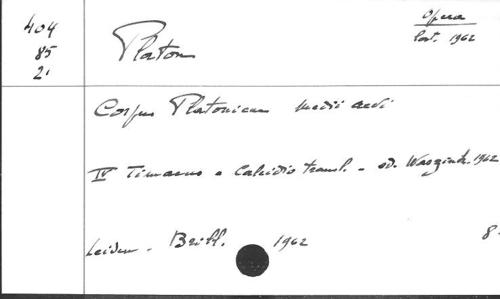 404
85
21
Platon
Opera
Lat. 1962
Corpus Platonicum medii aevi
IV Timaeus a Calcidio transl. - ed. Waszink. 1962
Leiden - Brill. 1962
8-